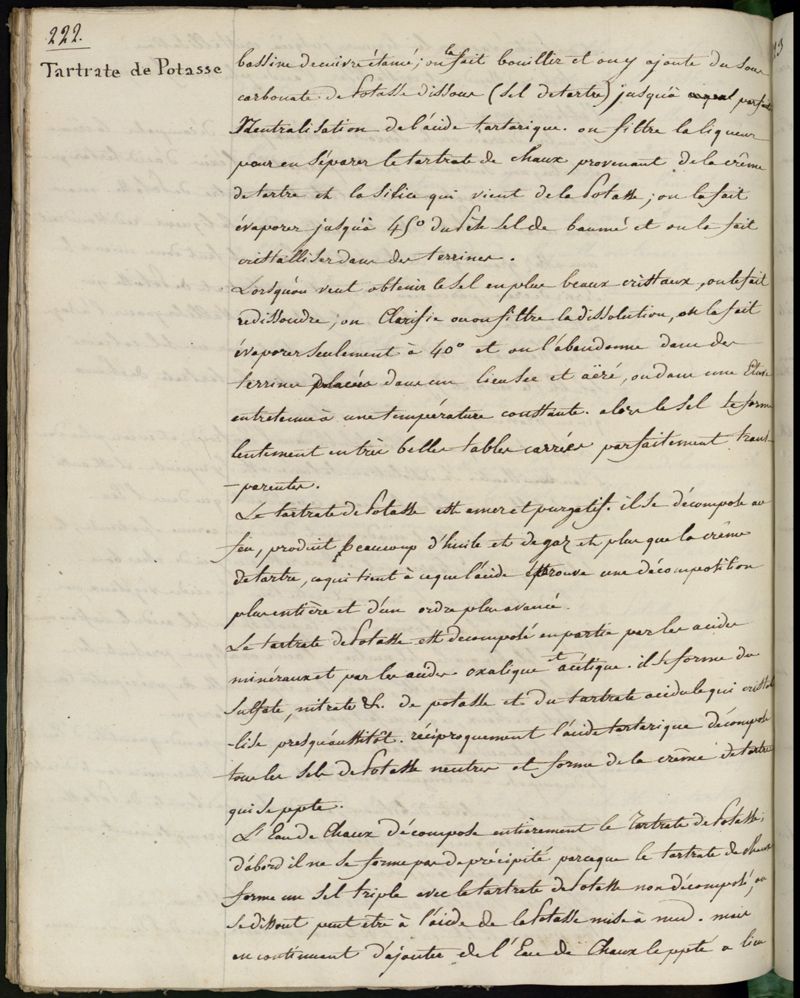 222.
Tartrate de Potasse
bassine de cuivre étamé; on la fait bouillir et on y ajoute du Sous
carbonate de Potasse dissous (Sel de tartre) jusqu'à parfaite
Neutralisation de l'acide tartarique. on filtre la liqueur
pour en Séparer le tartrate de Chaux provenant de la crême
de tartre et la Silice qui vient de la Potasse; on la fait
évaporer jusqu'à 45° du Pèse Sel de Baumé et on la fait
cristalliser dans des terrines.
Lorsqu'on veut obtenir le Sel en plus beaux cristaux, on le fait
redissoudre; on Clarifie ou on filtre la dissolution, on la fait
évaporer Seulement à 40° et on l'abandonne dans des
terrines placées dans un lieu Sec et aëré, ou dans une Etuve
entretenue à une température constante. alors le Sel se forme
lentement en très belles tables carrées parfaitement trans-
-parentes.
Le tartrate de Potasse est amer et purgatif. il Se décompose au
feu, produit beaucoup d'huile et de gaz et plus que la crême
de tartre, ce qui tient à ce que l'acide éprouve une décomposition
plus entière et d'un ordre plus avancé.
Le tartrate de Potasse est décomposé en partie par les acides
minéraux et par les acides oxalique et acétique. il Se forme du
Sulfate, nitrate &. de potasse et du tartrate acidule qui cristal
-lise presqu'aussitôt. réciproquement l'acide tartarique décompose
tous les Sels de Potasse neutres et forme de la crême de tartre
qui Se ppte.
L'Eau de Chaux décompose entièrement le Tartrate de Potasse;
d'abord il ne Se forme pas de précipité parceque le tartrate de chaux
forme un Sel triple avec le tartrate de Potasse non décomposé, ou
Se dissout peut être à l'aide de la Potasse mise à nud. mais
en continuant d'ajouter de l'Eau de Chaux le ppté a lieu